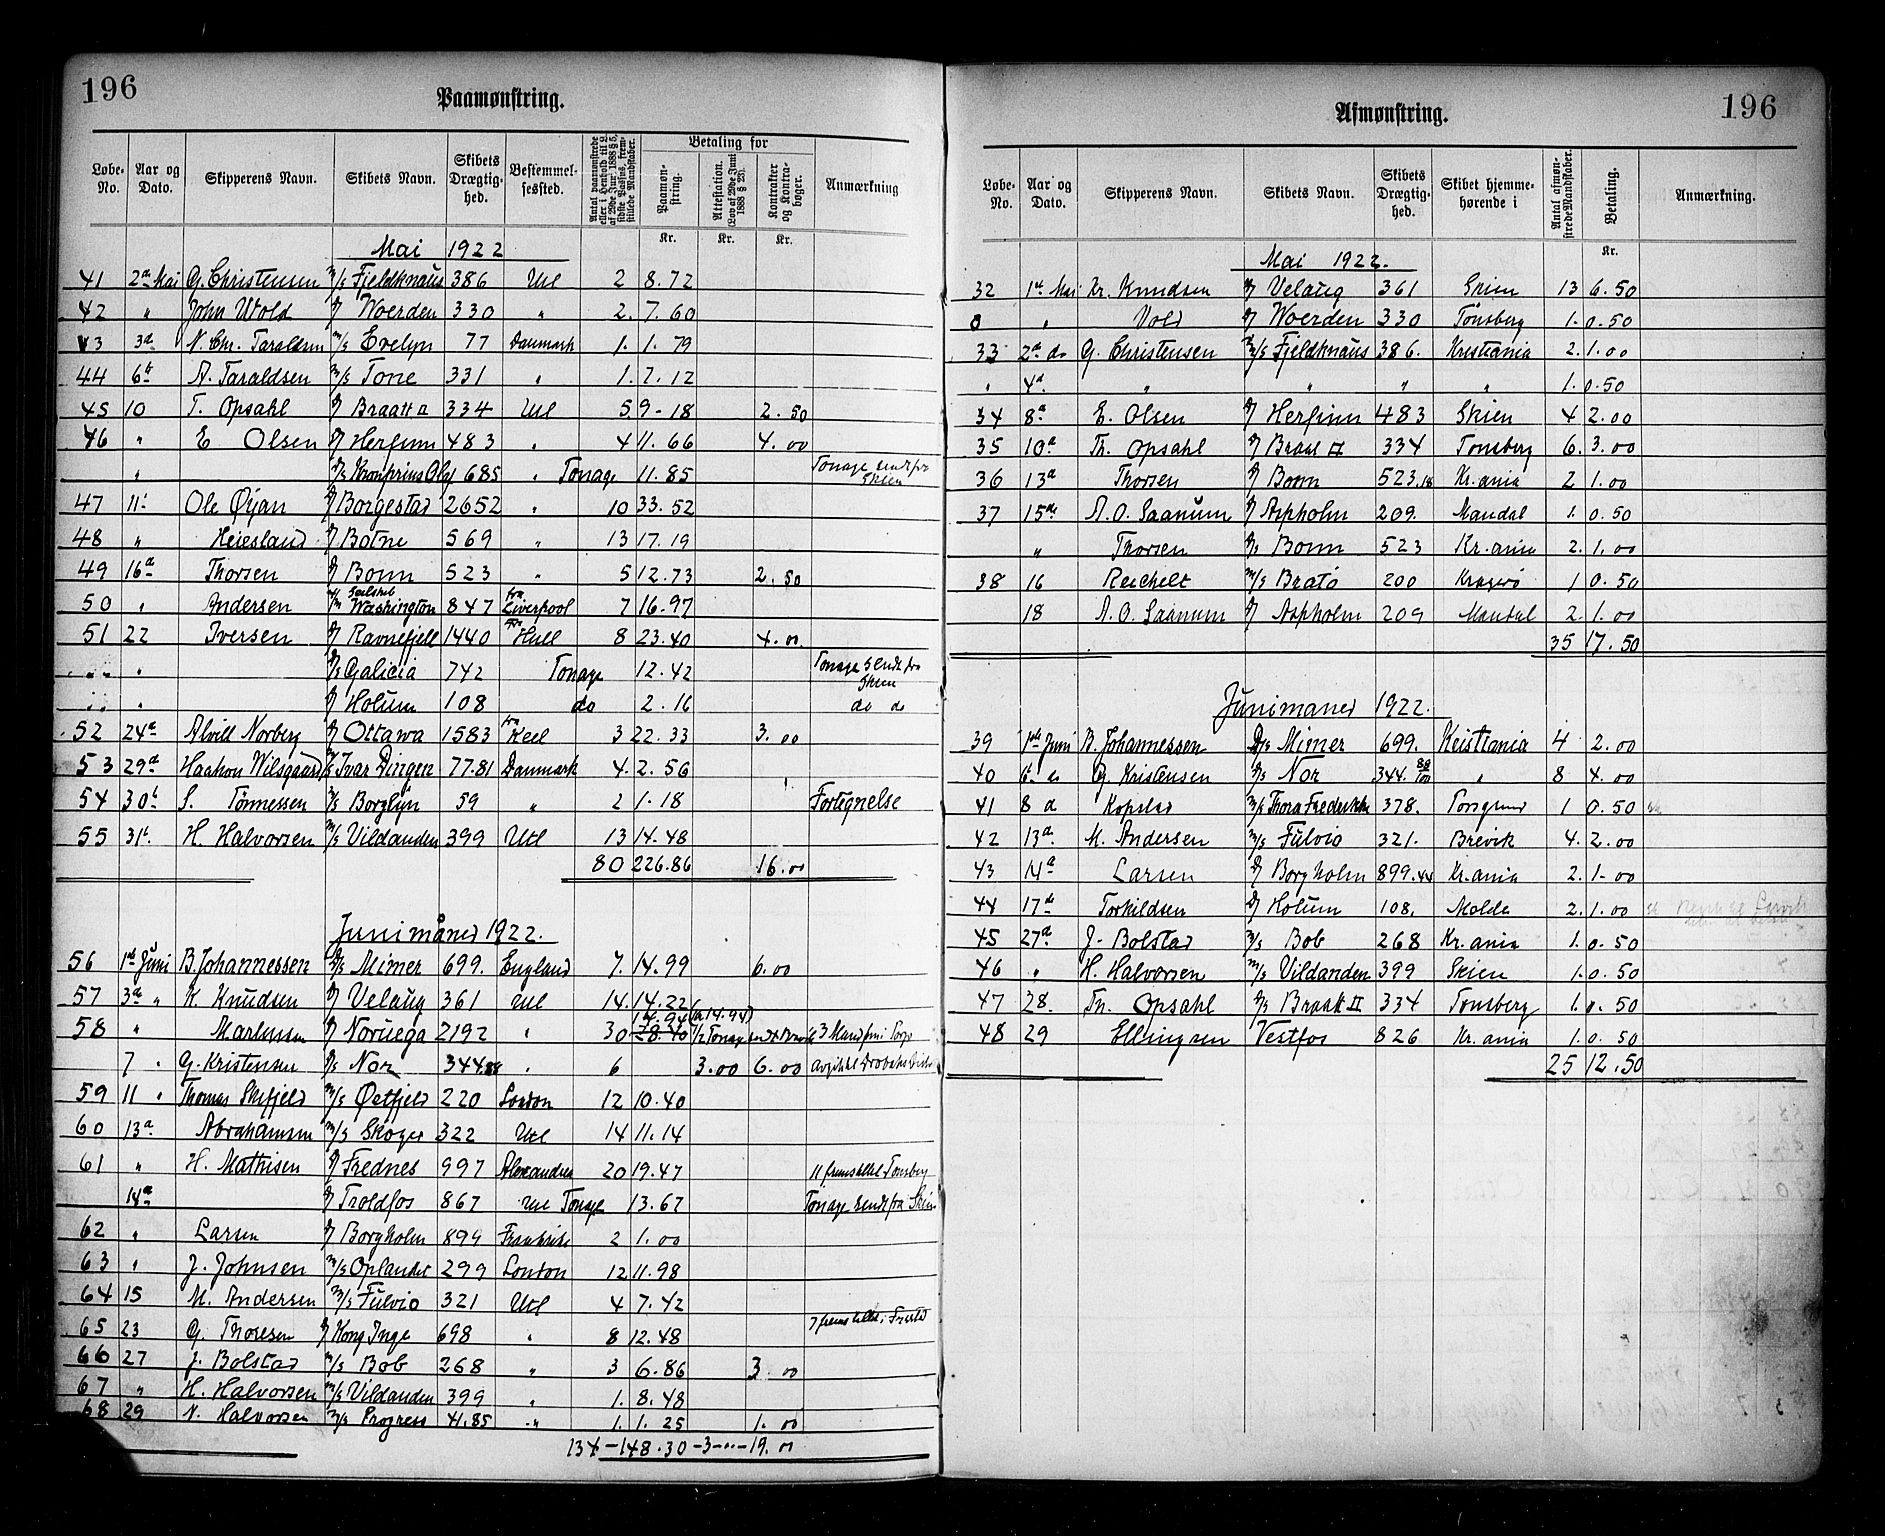 196
Paamønstring.
Løbe-No. Aar og Dato. Skipperens Navn. Skibets Navn. Skibets Drægtighed. Bestemmelsessted. Antal paamønstrede eller i Henhold til L. af 29de Juni 1888 § 5, sidste Passus, fremstillede Mandskaber. Betaling for Paamønstring. Attestation. (Lov af 29de Juni 1888 § 23). Kontrakter og Kontrabøger. Anmærkning
Kr. Kr. Kr.
Mai 1922
41 2den Mai G. Christensen M/S Fjeldknaus 386 Utl 2 8.72
42 " John Wold D/ Woerden 330 " 2. 7.60
43 3d N. Chr. Taraldsen M/S Evelyn 77 Danmark 1. 1.79
44 6te A. Taraldsen M/S Tone 331 " 1. 7.12
45 10 T. Opsahl D/ Braatt II 334 Utl 5 9-18 2.50
46 " E Olsen D/ Herfinn 483 " 4 11.66 4.00
" D/S Kronprins Olaf 685 " Tonage 11.85 Tonage sendt fra Skien
47 11' Ole Øijan D/ Borgestad 2652 " 10 33.52
48 " Heiesland D/ Botne 569 " 13 17.19
49 16d Thorsen D/ Bonn 523 " 5 12.73 2.50
50 " Andersen Seilskib Washington 847 fra Liverpool 7 16.97
51 22 Iversen D/ Ravnefjell 1440 fra Hull 8 23.40 4.00
" " D/S Galicia 742 Tonage 12.42 Tonage sendt fra Skien
" " D/ Holum 108 do 2.16 do do
52 24d Alvill Norberg D/ Ottawa 1583 fra Keel 3 22.33 3.00
53 29d Haakon Wilsgaard M/S Ivar Dingen 77.81 Danmark 4. 2.56
54 30' S. Tønnessen M/S Borglyn 59 " 2 1.18 Fortegnelse
55 31' H. Halvorsen M/S Vildanden 399 Utl 13 14.48
80 226.86 16.00
Junimåned 1922.
56 1ste Juni B. Johannessen D/S Mimer 699. England 7. 14.99 6.00
57 3d " K. Knudsen D/ Velaug 361 Utl 14. 14.22
58 " Martinsen D/ Noruega 2192 " 30 14.94 (a 14.94) 1/2 Tonage
7 " G. Kristensen D/S Nor 344.88 " 6 3.00 6.00
59 11 " Thomas Skifjeld M/S Østfjeld 220 London 12 10.40
60 13d Abrahamsen M/S Skoger 322 Utl 14 11.14
61 " H. Mathisen D/ Frednes 997 Alexandria 20 19.47 11 fremstillet Tønsberg
14d D/ Troldfos 867 Utl Tonage 13.67 Tonage sendt fra Skien
62 " Larsen D/ Borgholm 899 Frankrike 2 1.00
63 " J. Johnsen M/S Oplandet 299 London 12 11.98
64 15 M. Andersen M/S Fulvio 321 Utl 4 7.42
65 23 G. Thoresen D/ Kong Inge 698 " 8 12.48 7 fremstillet i Fr.stad
66 27 J. Bolstad M/S Bob 268 " 3 6.86 3.00
67 " H. Halvorsen M/S Vildanden 399 " 1. 8.48
68 29 N. Halvorsen M/S Progress 41.85 " 1. 1.25 1.00
134-148.30-3-"-19.00
196
Afmønstring.
Løbe-No. Aar og Dato. Skipperens Navn. Skibets Navn. Skibets Drægtighed. Skibet hjemmehørende i Antal afmønstrede Mandskaber. Betaling. Anmærkning.
Kr.
Mai 1922.
32 1ste Mai Kr. Knudsen D/ Velaug 361 Skien 13 6.50
0 " Vold D/ Woerden 330 Tønsberg 1. 0.50
33 2d do G. Christensen M/S Fjeldknaus 386. Kristiania 2. 1.00
" 4d " " " " 1. 0.50
34 8d E. Olsen D/ Herfinn 483 Skien 4 2.00
35 10d Th. Opsahl D/ Braat II 334 Tønsberg 6. 3.00
36 13d Thorsen D/ Bonn 523.18 Kr.ania 2 1.00
37 15de A. O. Saanum D/ Aspholm 209. Mandal 1. 0.50
" Thorsen D/S Bonn 523 Kr.ania 2. 1.00
38 16 Reichelt M/S Bratø 200 Kragerø 1 0.50
18 A. O. Saanum D/ Aspholm 209 Mandal 2. 1.00
35 17.50
Junimaned 1922.
39 1ste Juni B. Johannessen D/S Mimer 699. Kristiania 4 2.00
40 G. Kristensen D/S Nor 344.88/100 " 8 4.00
41 8 d Kopstad M/S Thora Fredrikke 378. Porsgrund 1 0.50
42 13d M. Andersen M/S Fulvio 321. Brevik 4. 2.00
43 14d Larsen D/ Borgholm 899.44 Kr.ania 2. 1-00
44 17de Torkildsen D/ Holum 108. Molde 2. 1.00
45 27d J. Bolstad M/S Bob 268 Kr.ania 1. 0.50
46 " H. Halvorsen M/S Vildanden 399 Skien 1. 0.50
47 28. Th. Opsahl D/S Braatt II 334 Tønsberg 1. 0.50
48 29 Ellingsen Vestfos 826 Kr.ania 1. 0.50
25 12.50